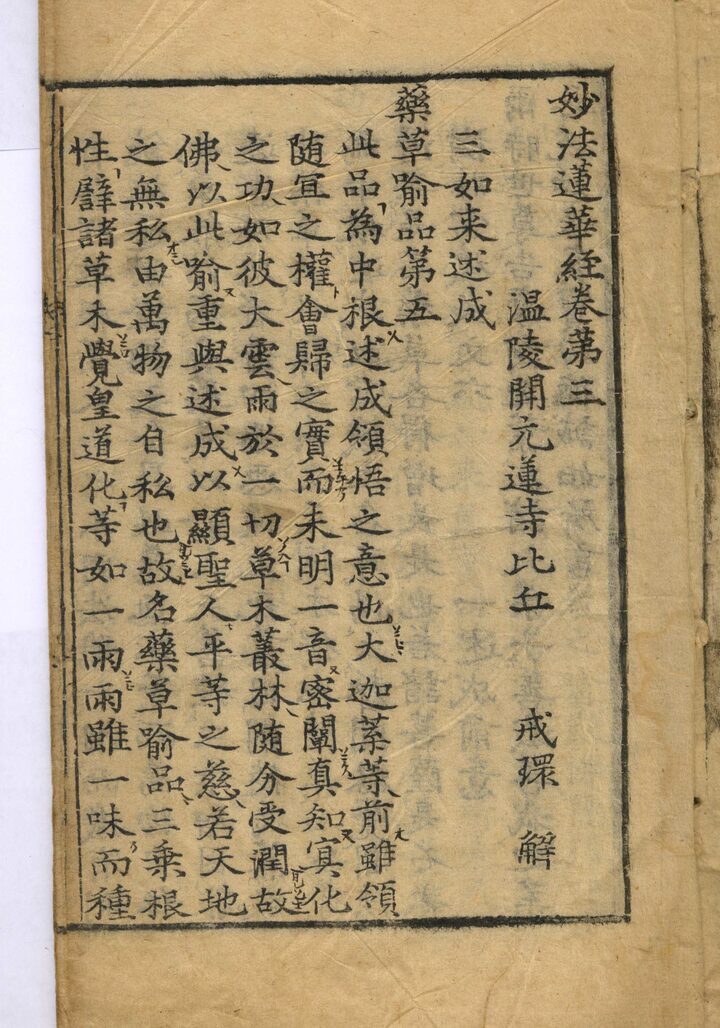 妙法蓮華経卷第三
温陵開元蓮寺比丘 戒環 解
三如来述成
藥草喻品第五
此品為中根述成領悟之意也大迦葉等前雖領
随宜之權會歸之實而未明一音密闡真知㝠化
之功如彼大雲雨於一切草木叢林随分受潤故
佛以此喻重與述成以顯聖人平等之慈若天地
之無私由萬物之自私也故名藥草喻品三乗根
性譬諸草木覺皇道化等如一雨雨雖一味而種